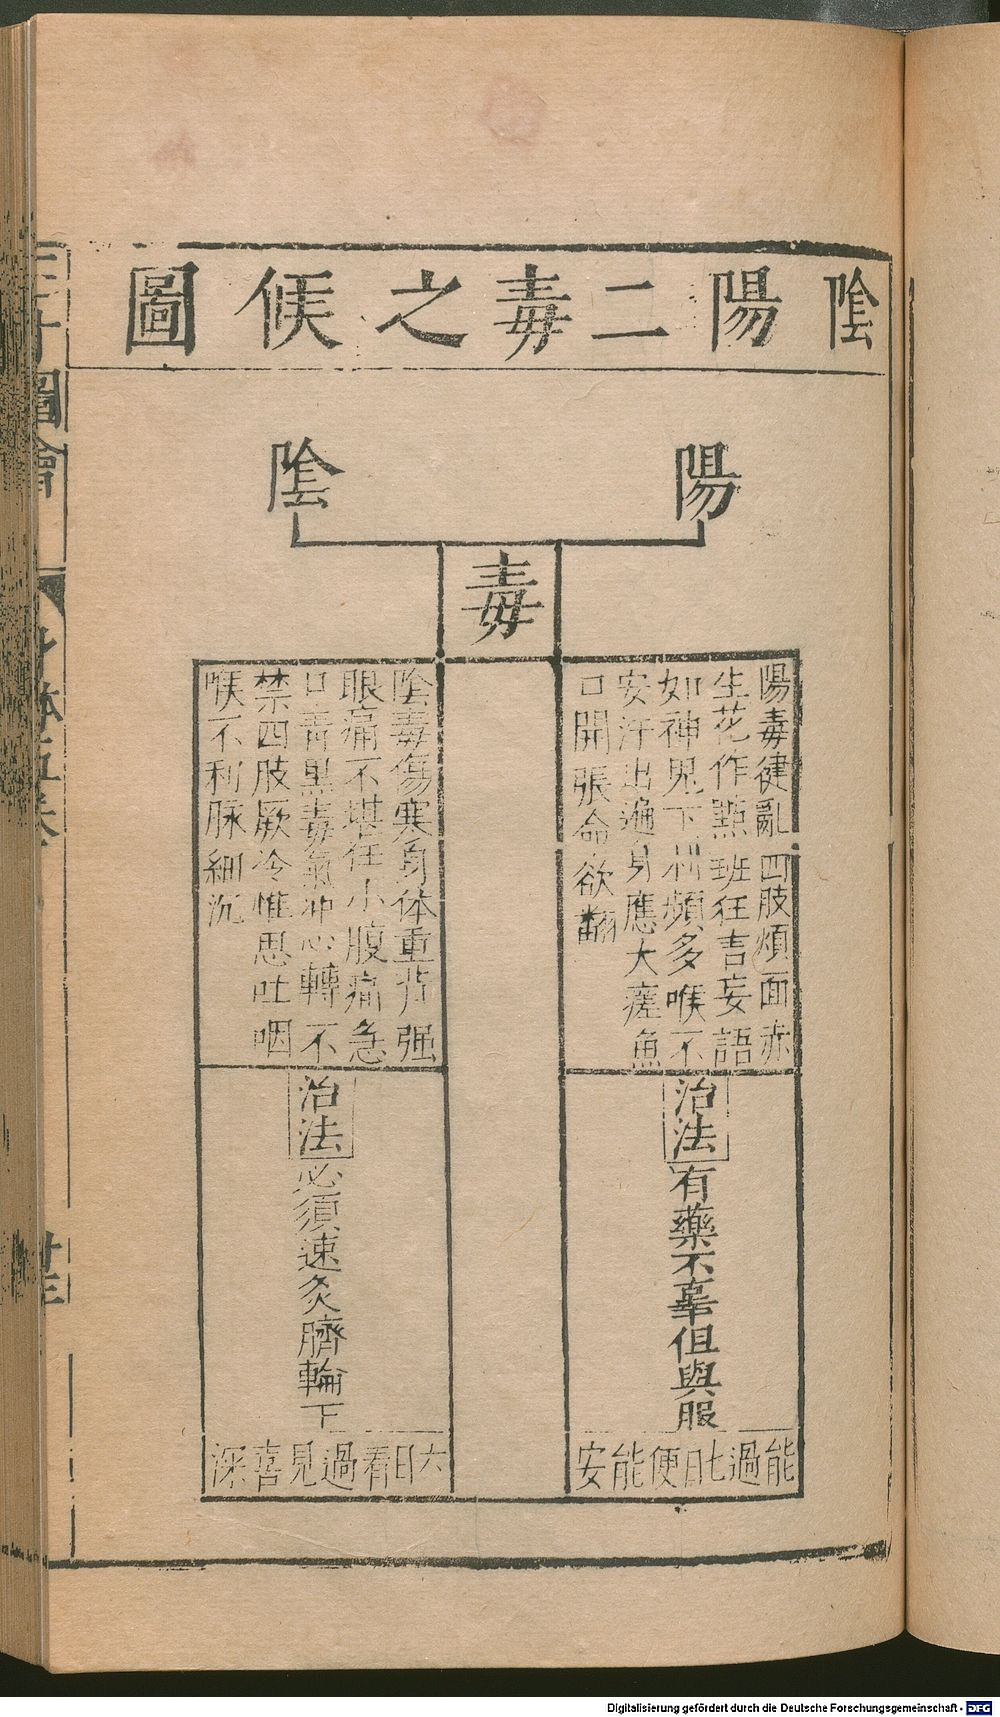 陰陽二毒之候圖
陽
陰
毒
陽毒健亂四肢煩面赤
生花作點班狂言妄語
如神鬼下利頻多喉不
安汗出遍身應大瘥魚
口開張命欲翻
治法
有藥不辜但與服
能過七日便能安
陰毒傷寒身体重背强
眼痛不堪任小腹痛急
口青黑毒氣冲心轉不
禁四肢厥冷惟思吐咽
喉不利脉細沉
治法
必須速灸臍輪下
六日看過見喜深
圖會
身体五卷
Digitalisierung gefördert durch die Deutsche Forschungsgemeinschaft - DFG